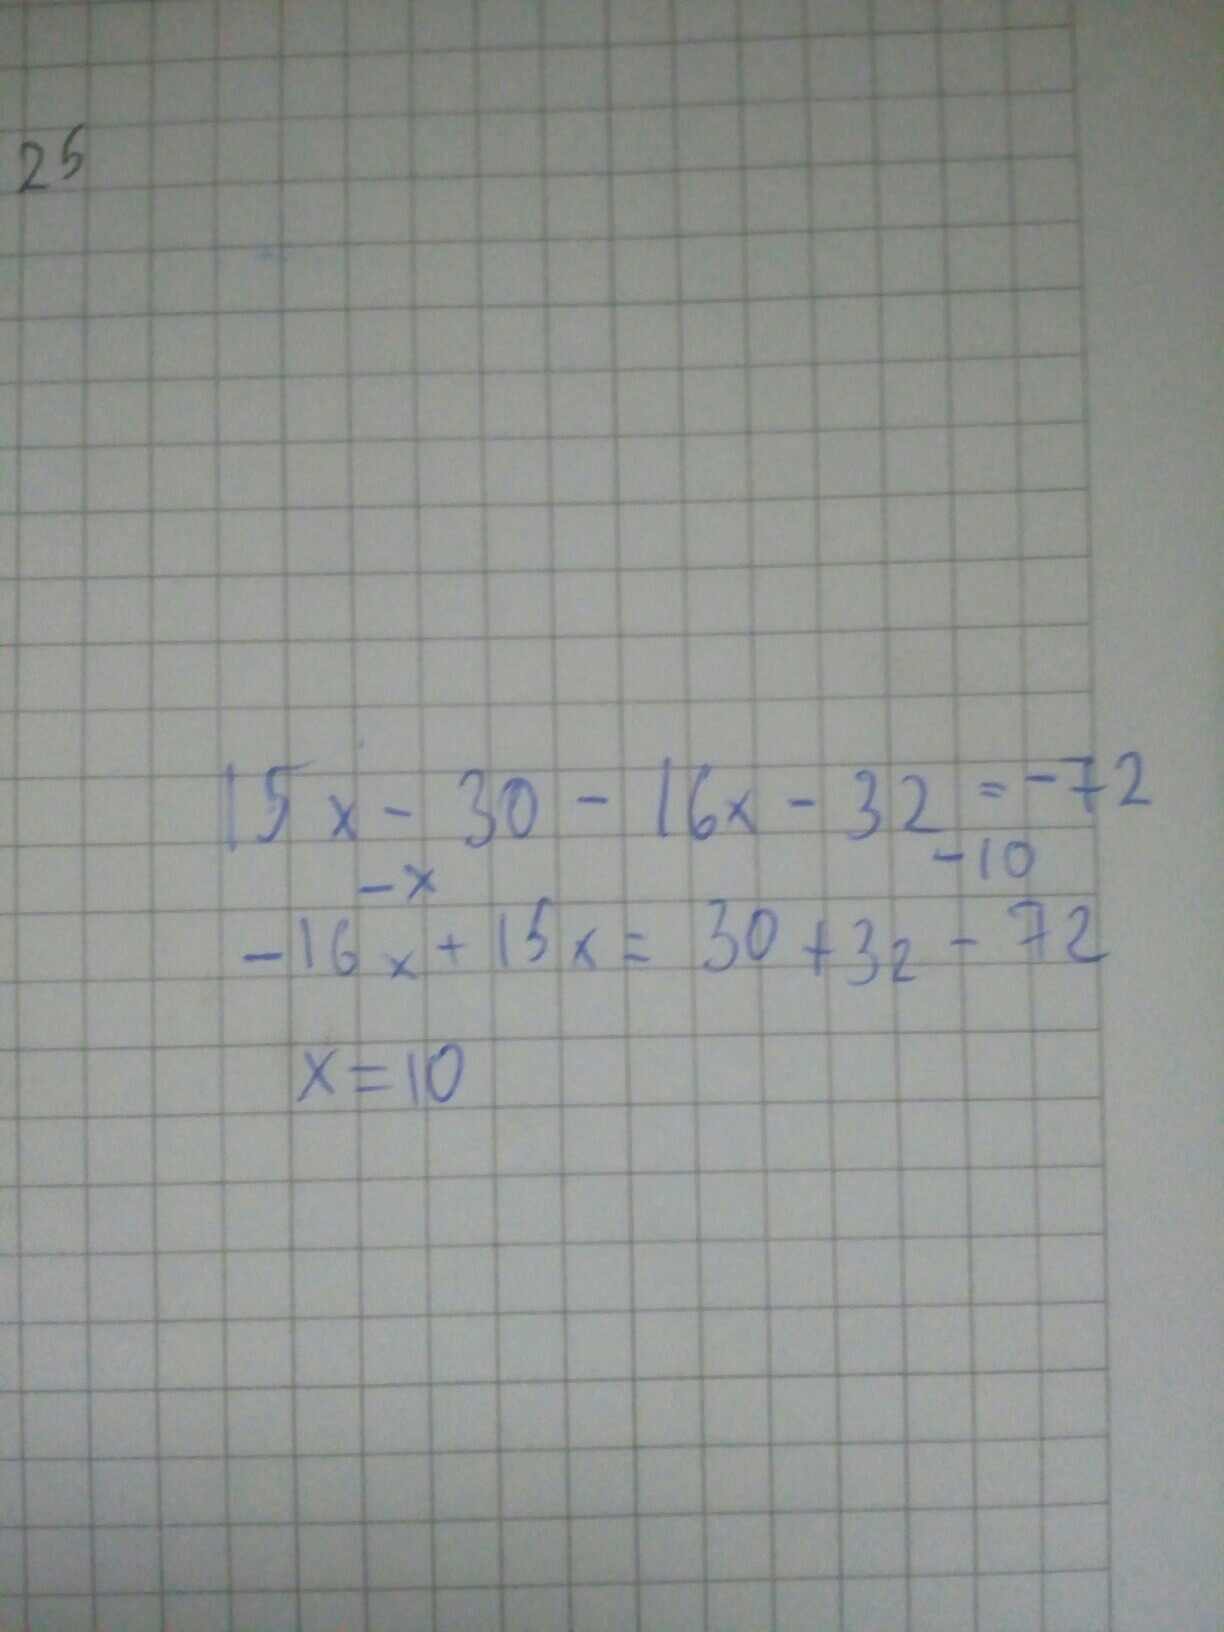 25
15x - 30 - 16x - 32 = -72
-x -10
-16x + 15x = 30 + 32 - 72
x = 10